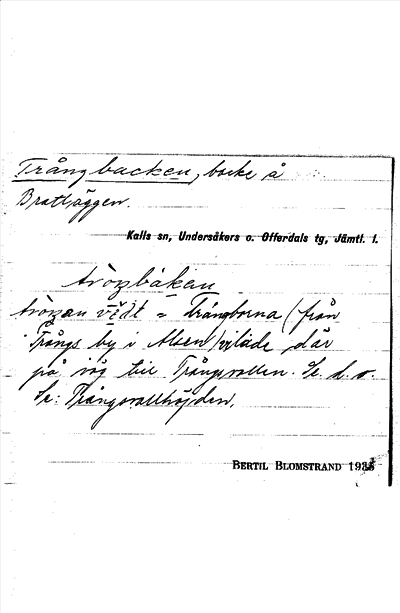 Trångbacken, backe å
Brattäggen.
Kalls sn, Undersåkers o. Offerdals tg, Jämtl. l.
trångan = Trångborna (från
Trångs by i Alsen) vilade där
på väg till Trångvallen. Se d. o.
Se: Trångvallhöjden.
BERTIL BLOMSTRAND 193